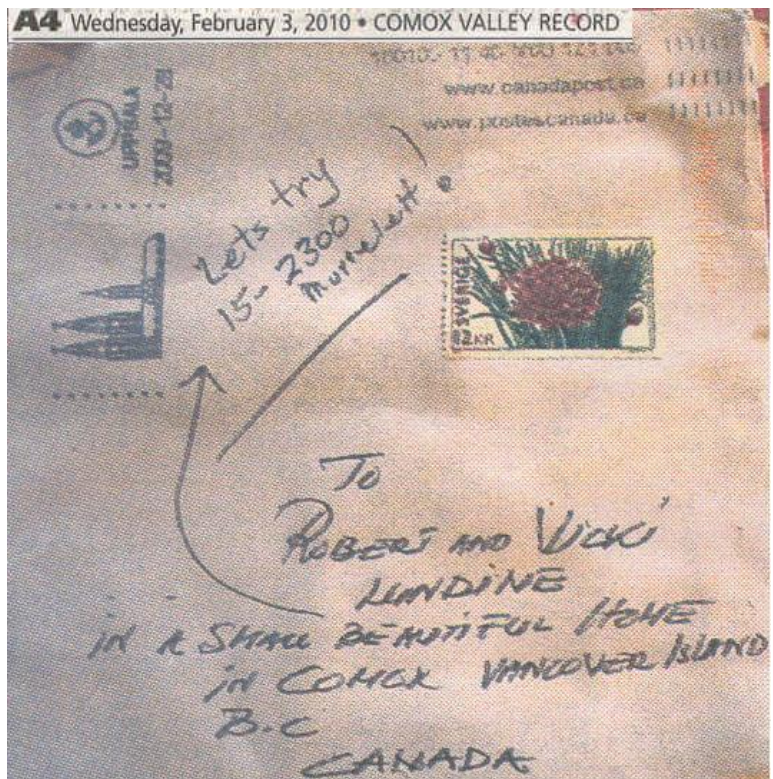 A4 Wednesday, February 3, 2010 • COMOX VALLEY RECORD
www.canadapost.ca
www.postescanada.ca
UPPSALA
Lets try
15-2300
SVERIGE
12KR
To
ROBERT AND VICKI
LUNDINE
IN A SMALL BEAUTIFUL HOME
IN COMOX VANCOVER ISLAND
B.C
CANADA